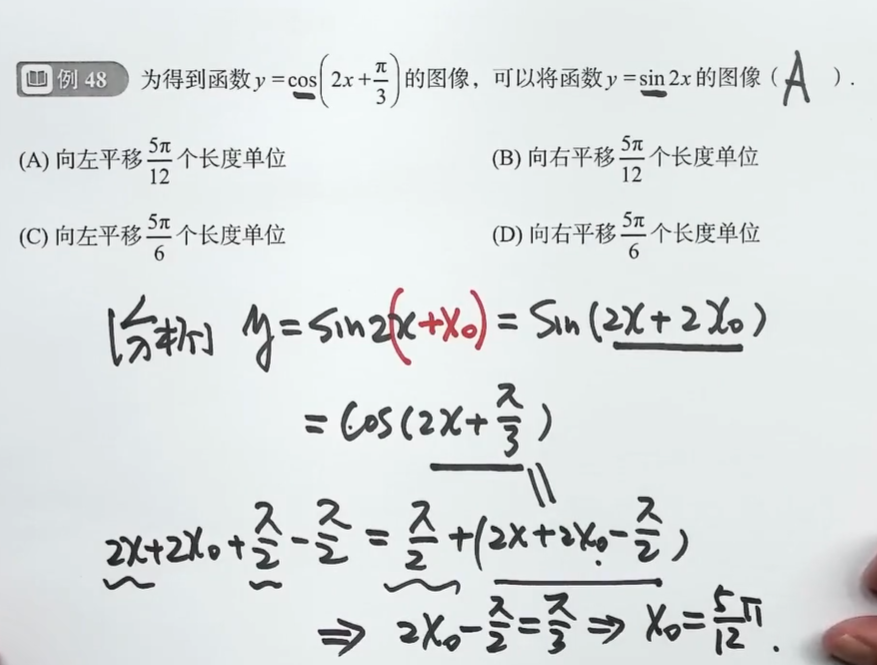 例 48 为得到函数 y=cos(2x+π/3)的图像，可以将函数 y=sin 2x 的图像（ A ）.
(A) 向左平移 5π/12 个长度单位 (B) 向右平移 5π/12 个长度单位
(C) 向左平移 5π/6 个长度单位 (D) 向右平移 5π/6 个长度单位
[分析] y=sin2(x+x₀)=sin(2x+2x₀)
=cos(2x+π/3)
2x+2x₀+π/2-π/2=π/2+(2x+2x₀-π/2)
⇒ 2x₀-π/2=π/3 ⇒ x₀=5/12π.